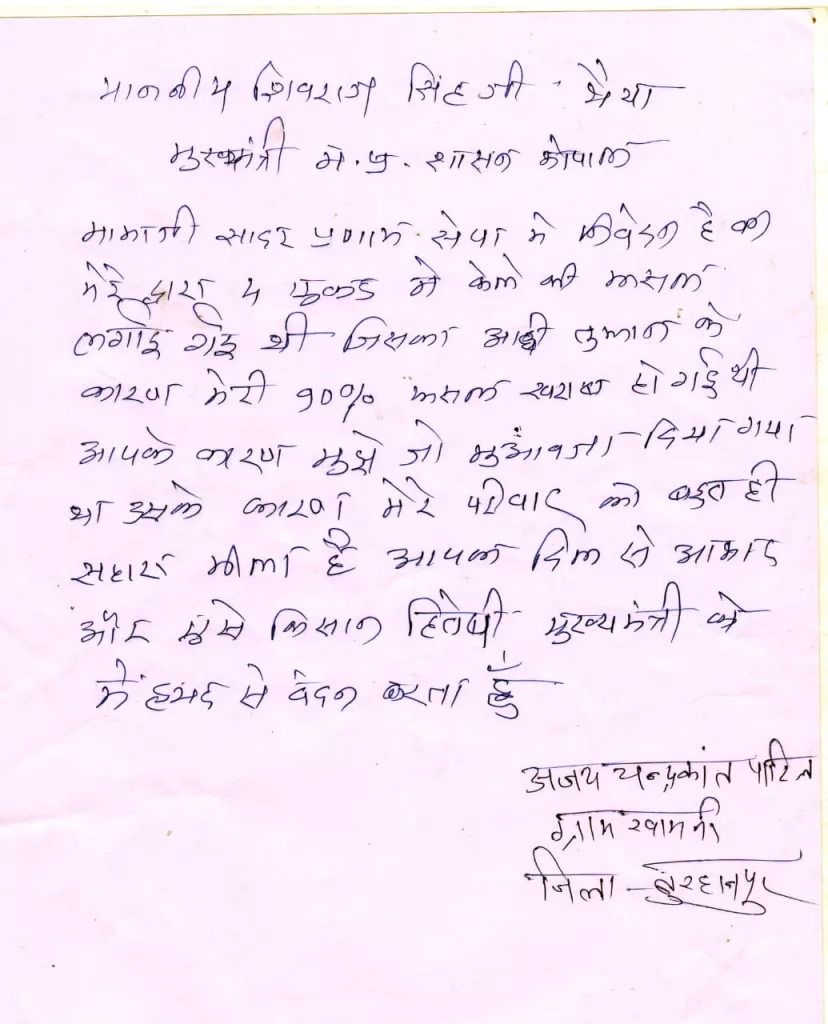 माननीय शिवराज सिंह जी भैया
मुख्यमंत्री म.प्र. शासन भोपाल
मामाजी सादर प्रणाम सेवा मे निवेदन है की
मेरे द्वारा 4 एकड मे केले की फसल
लगाई गई थी जिसका आंधी तुफान के
कारण मेरी 90% फसल खराब हो गई थी
आपके कारण मुझे जो मुआवजा दिया गया
था उसके कारण मेरे परिवार को बहुत ही
सहारा मीला है आपका दिल से आभार
और ऐसे किसान हितेषी मुख्यमंत्री को
मे हृदय से वंदन करता हुँ
अजय चन्द्रकांत पाटिल
ग्राम खामनी
जिला - बुरहानपुर